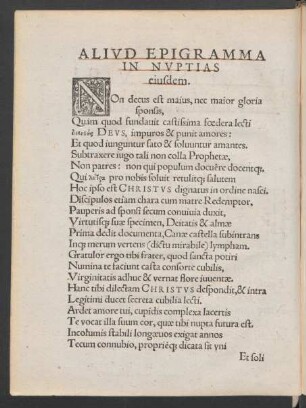 ALIVD EPIGRAMMA
IN NVPTIAS
eiusdem.
NOn decus est maius, nec maior gloria
sponsis,
Quàm quod fundauit castissima fœdera lecti
DEVS, impuros & punit amores:
Et quod iunguntur fato & soluuntur amantes.
Subtraxere iugo tali non colla Prophetæ,
Non patres: non qui populum docuêre docentq;.
Qui pro nobis soluit retulitq; salutem
Hoc ipso est CHRISTVS dignatus in ordine nasci.
Discipulos etiam chara cum matre Redemptor,
Pauperis ad sponsi secum conuiuia duxit,
Virtutisq; suæ specimen, Deitatis & almæ
Prima dedit documenta, Canæ castella subintrans
Inq; merum vertens (dictu mirabile) lympham.
Gratulor ergo tibi frater, quod sancta potiri
Numina te faciunt casta consorte cubilis,
Virginitatis adhuc & vernat flore iuuentæ.
Hanc tibi dilectam CHRISTVS despondit, & intra
Legitimi ducet secreta cubilia lecti.
Ardet amore tui, cupidis complexa lacertis
Te vocat illa suum cor, quæ tibi nupta futura est.
Incolumis stabili longæuos exigat annos
Tecum connubio, propriéq; dicata sit vni
Et soli